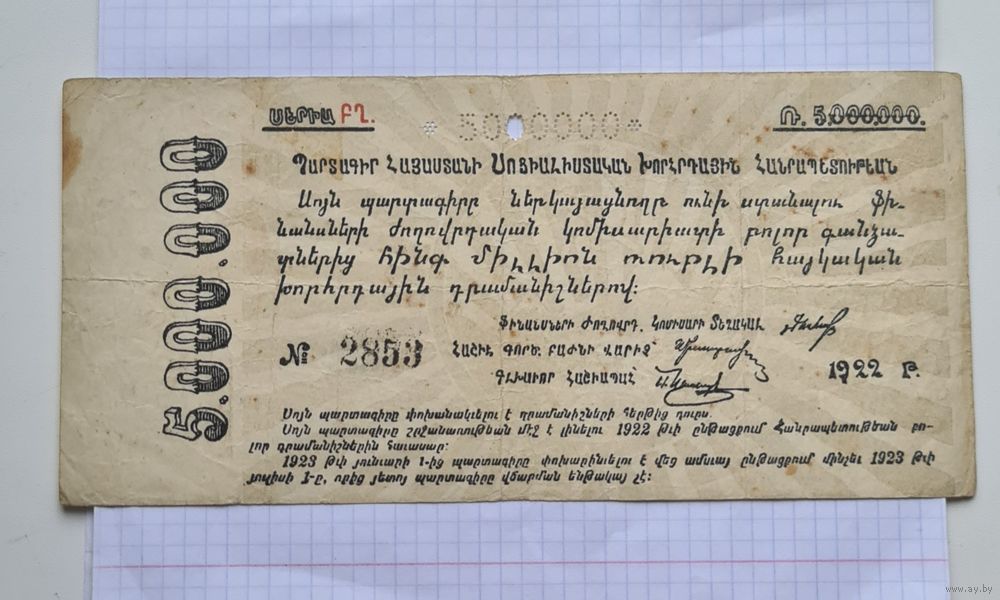 ՍԵՐԻԱ ԲՂ.
* 5000000 *
Ռ. 5.000.000.
5.000.000
ՊԱՐՏԱԳԻՐ ՀԱՅԱՍՏԱՆԻ ՍՈՑԻԱԼԻՍՏԱԿԱՆ ԽՈՐՀՐԴԱՅԻՆ ՀԱՆՐԱՊԵՏՈՒԹԵԱՆ
Սոյն պարտագիրը ներկայացնողը ունի ստանալու ֆի-
նանսների ժողովրդական կոմիսարիատի բոլոր գանձա-
տներից հինգ միլլիոն ռուբլի հայկական
խորհրդային դրամանիշներով:
ՖԻՆԱՆՍՆԵՐԻ ԺՈՂՈՎՐԴ. ԿՈՄԻՍԱՐԻ ՏԵՂԱԿԱԼ
№ 2853
ՀԱՇԻՒ ԳՈՐԾ. ԲԱԺՆԻ ՎԱՐԻՉ՝
ԳԼԽԱՒՈՐ ՀԱՇԻԱՊԱՀ՝
1922 Թ.
Սոյն պարտագիրը փոխանակելու է դրամանիշների հերթից դուրս.
Սոյն պարտագիրը շրջանառութեան մէջ է լինելու 1922 թւի ընթացքում Հանրապետութեան բո-
լոր դրամանիշներին հաւասար:
1923 թւի յունւարի 1-ից պարտագիրը փոխարինւելու է վեց ամսւայ ընթացքում մինչեւ 1923 թւի
յուլիսի 1-ը, որից յետոյ պարտագիրը վճարման ենթակայ չէ:
www.ay.by